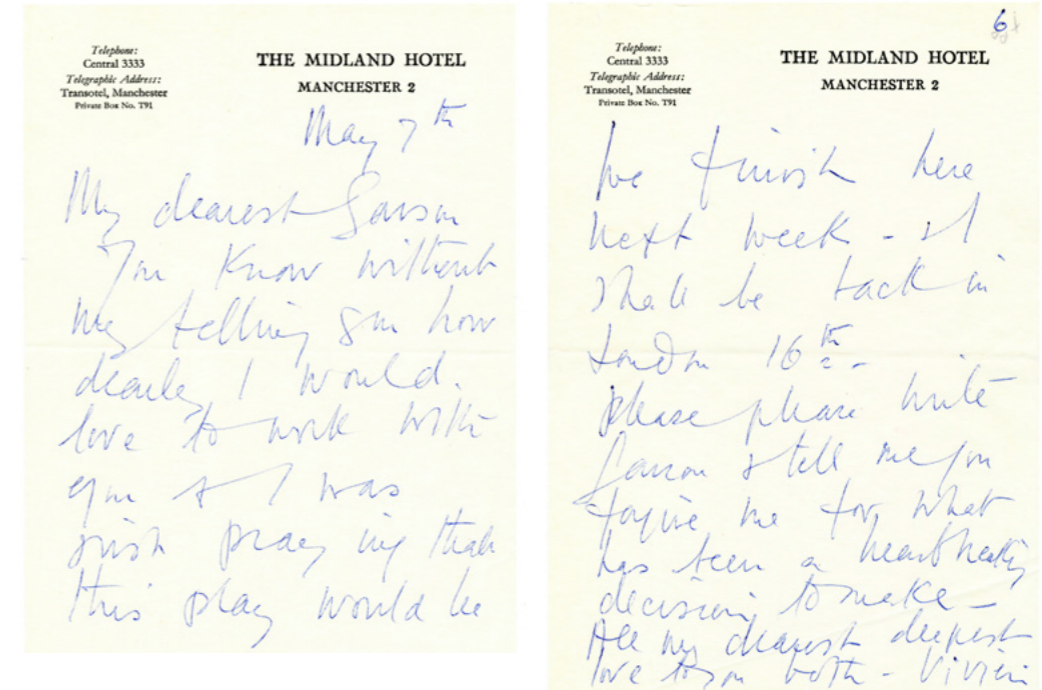 Telephone:
Central 3333
Telegraphic Address:
Transotel, Manchester
Private Box No. T91
THE MIDLAND HOTEL
MANCHESTER 2
May 7th
My dearest Garson
You know without
my telling you how
dearly I would
love to work with
you & I was
just praying that
this play would be
6
Telephone:
Central 3333
Telegraphic Address:
Transotel, Manchester
Private Box No. T91
THE MIDLAND HOTEL
MANCHESTER 2
We finish here
next week - & I
shall be back in
London 16th -
please please write
Garson & tell me you
forgive me for what
has been a heartbreaking
decision to make -
All my dearest deepest
love to you both - Vivien